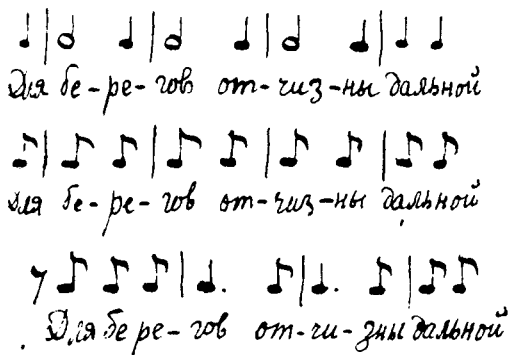 Для бе-ре-гов от-чиз-ны дальной
Для бе-ре-гов от-чиз-ны дальной
Для бе ре-гов от-чи-зны дальной